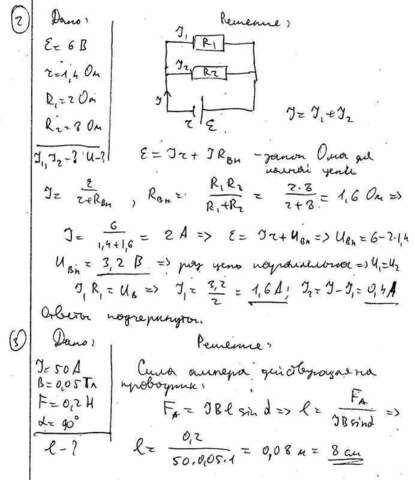 2 Дано: Решение:
Ɛ = 6 В
r = 1,4 Ом
R₁ = 2 Ом
R₂ = 8 Ом
I₁, I₂ - ? U - ?
I₁ R₁
I₂ R₂
I
r Ɛ
I = I₁ + I₂
Ɛ = Ir + IRвн - закон Ома для полной цепи
I = Ɛ/(r+Rвн), Rвн = R₁R₂/(R₁+R₂) = 2·8/(2+8) = 1,6 Ом =>
I = 6/(1,4+1,6) = 2 А => Ɛ = Ir + Uвн => Uвн = 6-2·1,4
Uвн = 3,2 В => раз цепь параллельная => U₁ = U₂
I₁R₁ = Uв => I₁ = 3,2/2 = 1,6 А; I₂ = I - I₁ = 0,4 А
Ответы подчеркнуты.
3 Дано: Решение:
I = 50 А
B = 0,05 Тл
F = 0,2 Н
α = 90°
l - ?
Сила ампера действующая на
проводник:
Fᴀ = IBl sin α => l = Fᴀ/(IB sin α) =>
l = 0,2/(50·0,05·1) = 0,08 м = 8 см